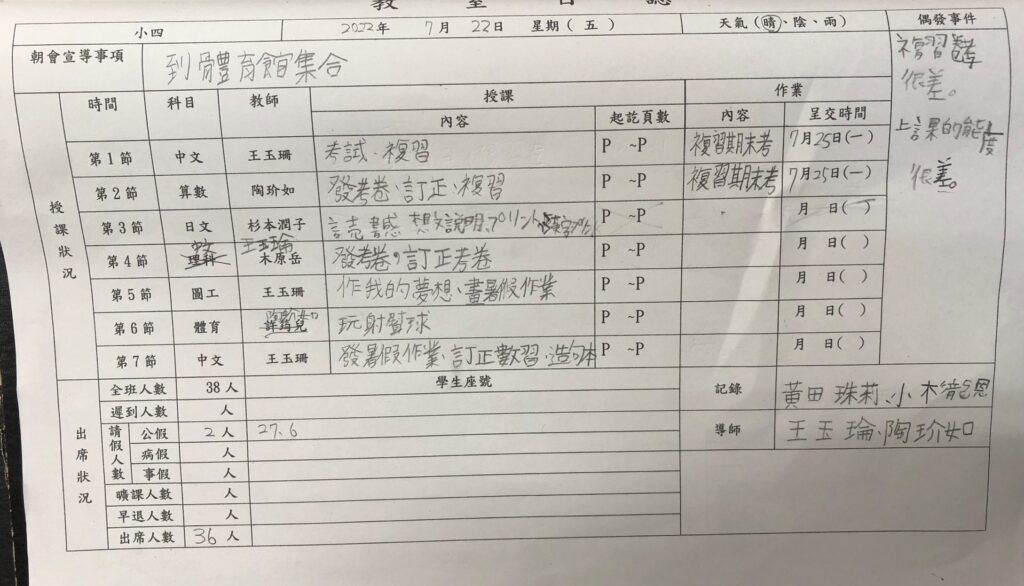 教室日誌
小四 2022年 7月 22日 星期(五) 天氣(晴、陰、雨) 偶發事件
朝會宣導事項 到體育館集合
複習考
很差。
上課的態度
很差。
授課狀況 時間 科目 教師 授課 作業
內容 起訖頁數 內容 呈交時間
第1節 中文 王玉珊 考試、複習 P ~P 複習期末考 7月25日(一)
第2節 算數 陶玠如 發考卷、訂正、複習 P ~P 複習期末考 7月25日(一)
第3節 日文 杉本潤子 読書感想文説明、プリント、漢字 P ~P 月 日( )
第4節 理科 木原岳 發考卷,訂正考卷 P ~P 月 日( )
第5節 圖工 王玉珊 作我的夢想、畫暑假作業 P ~P 月 日( )
第6節 體育 玩射壁球 P ~P 月 日( )
第7節 中文 王玉珊 發暑假作業、訂正數習、造句本 P ~P 月 日( )
出席狀況 全班人數 38人 學生座號 記錄 黃田 珠莉、小木
遲到人數 人
請假人數 公假 2人 27、6 導師 王玉瑜、陶玠如
病假 人
事假 人
曠課人數 人
早退人數 人
出席人數 36人